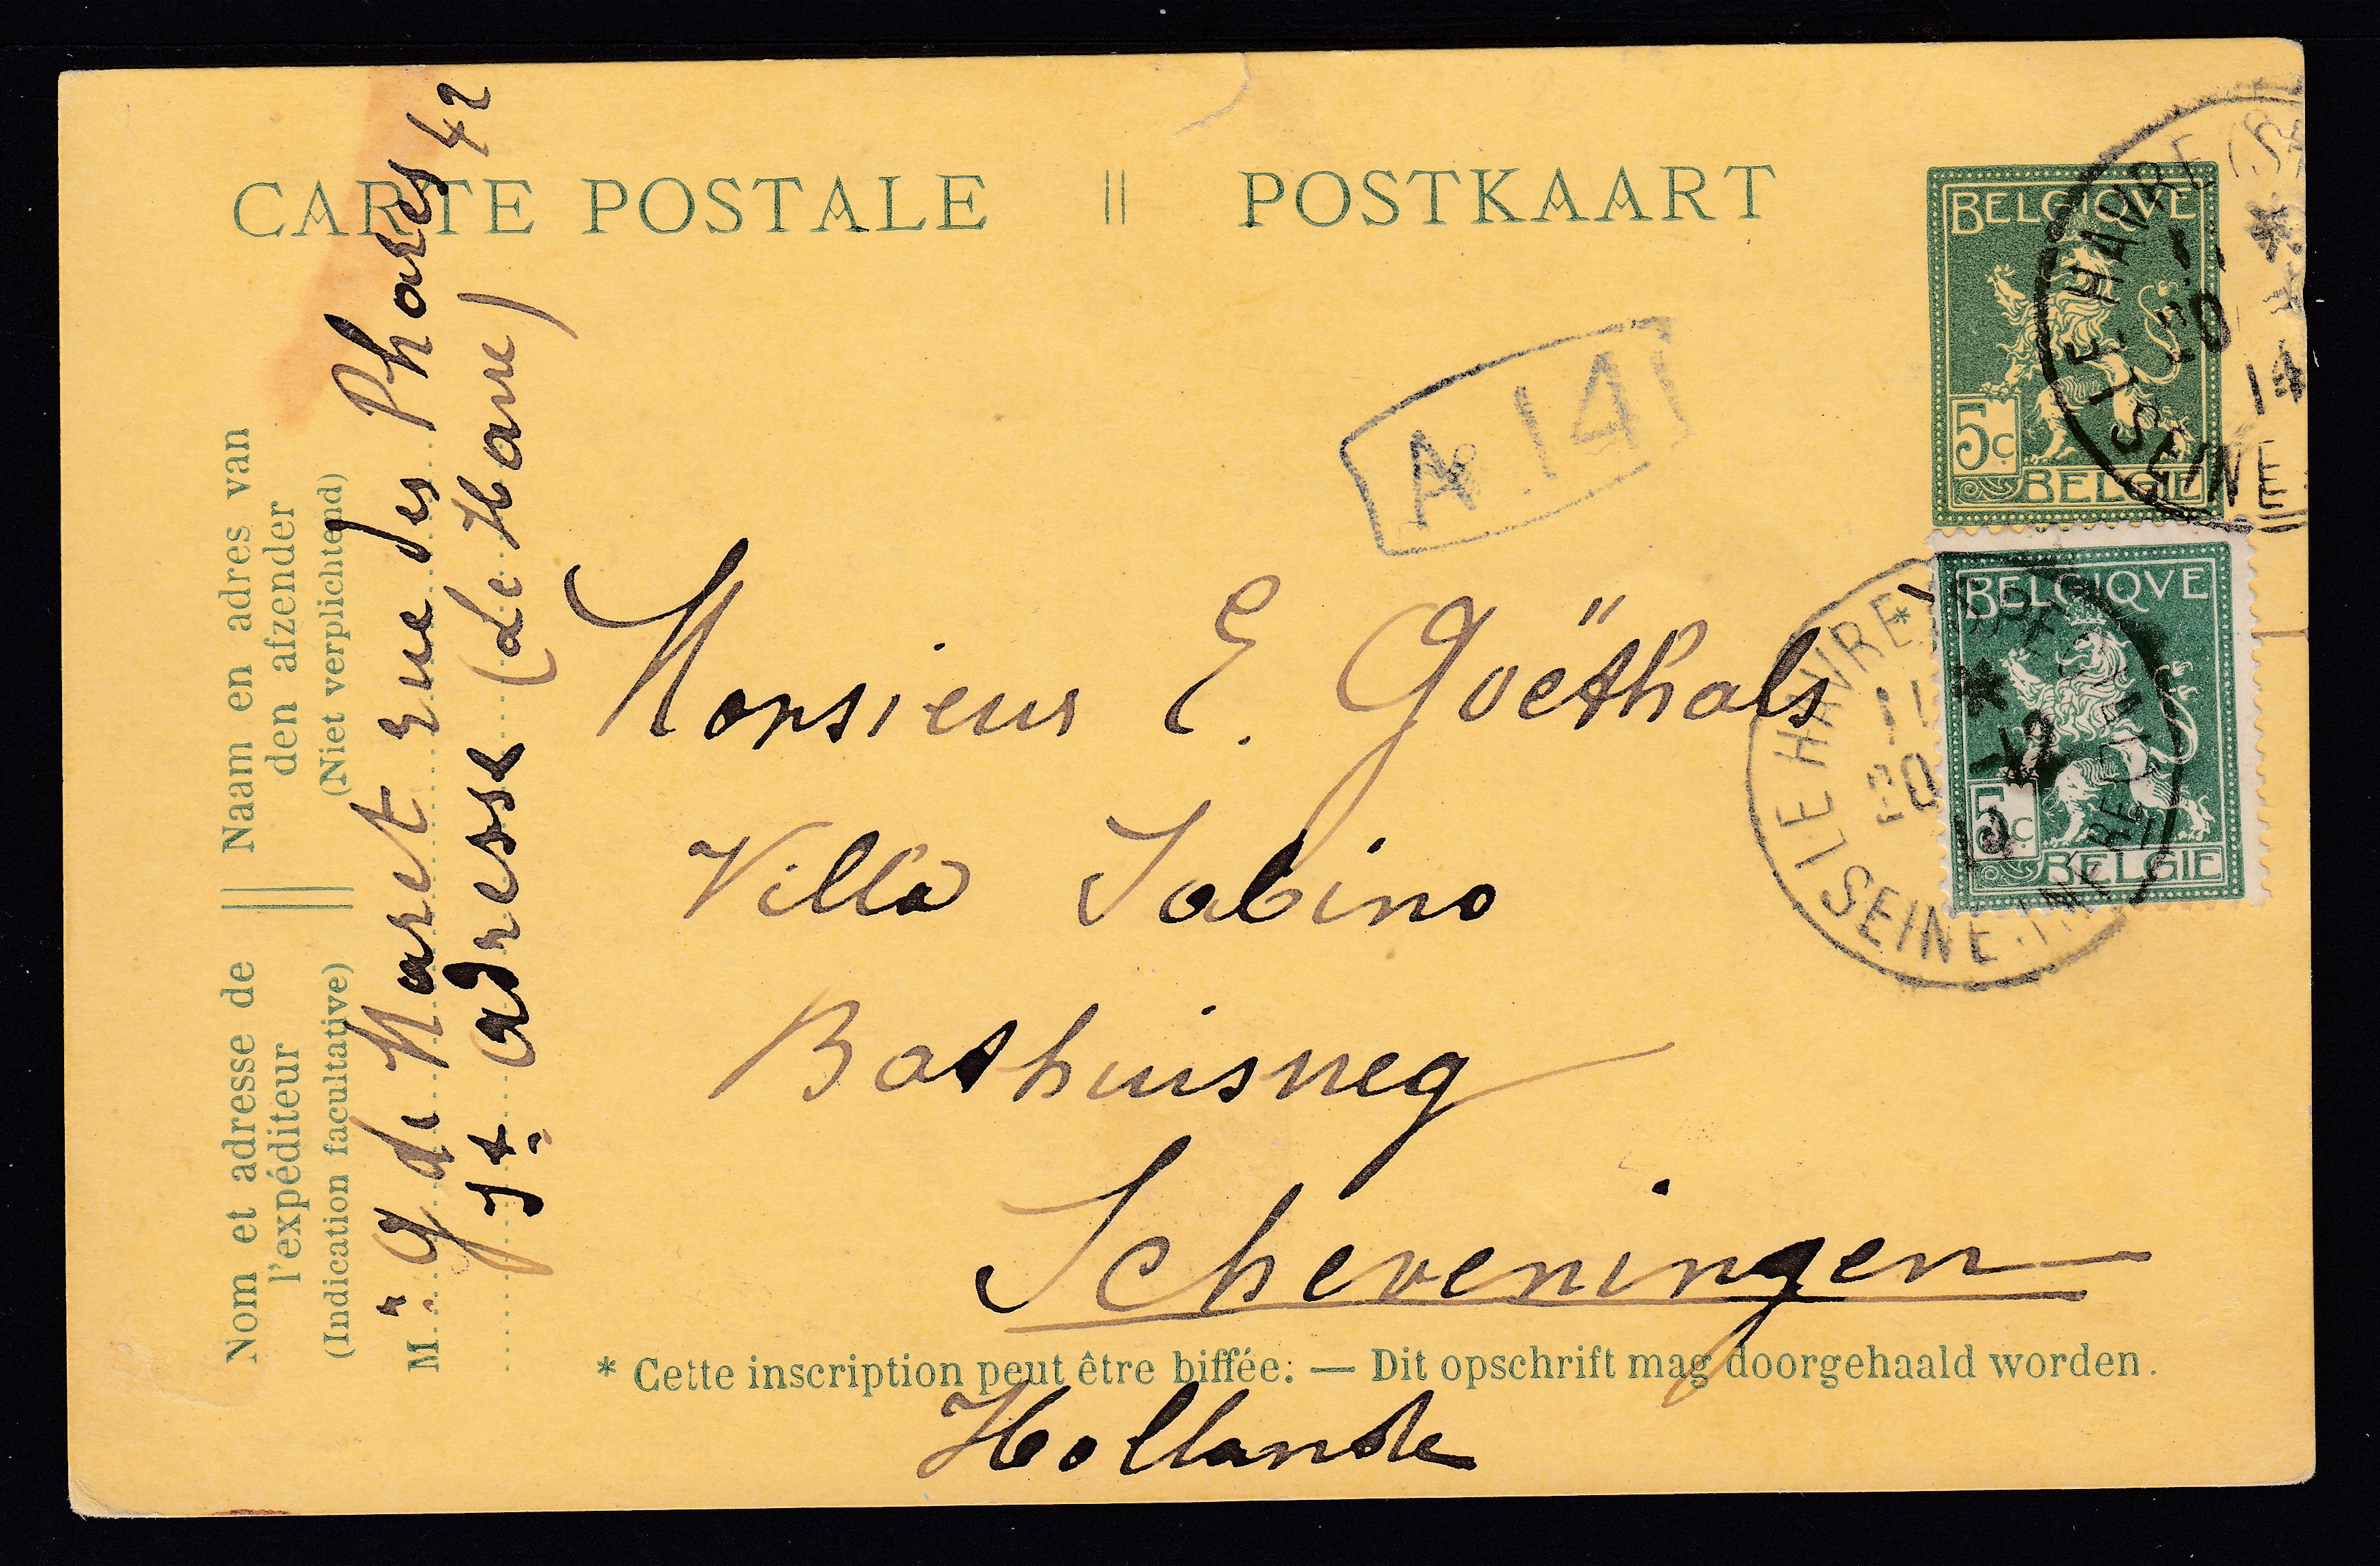 CARTE POSTALE || POSTKAART
BELGIQVE
5c
BELGIE
BELGIQVE
5c
BELGIE
LE HAVRE (SP
11
20
14
SEINE
LE HAVRE
11
20
12
14
SEINE. INF
A. 14
Nom et adresse de l'expéditeur
(Indication facultative)
Naam en adres van den afzender
(Niet verplichtend)
M. G de Maret rue des Phares 42
St. adresse (Le Havre)
Monsieur E. Goëthals
Villa Sabina
Bathuisweg
Scheveningen
* Cette inscription peut être biffée. — Dit opschrift mag doorgehaald worden.
Hollande